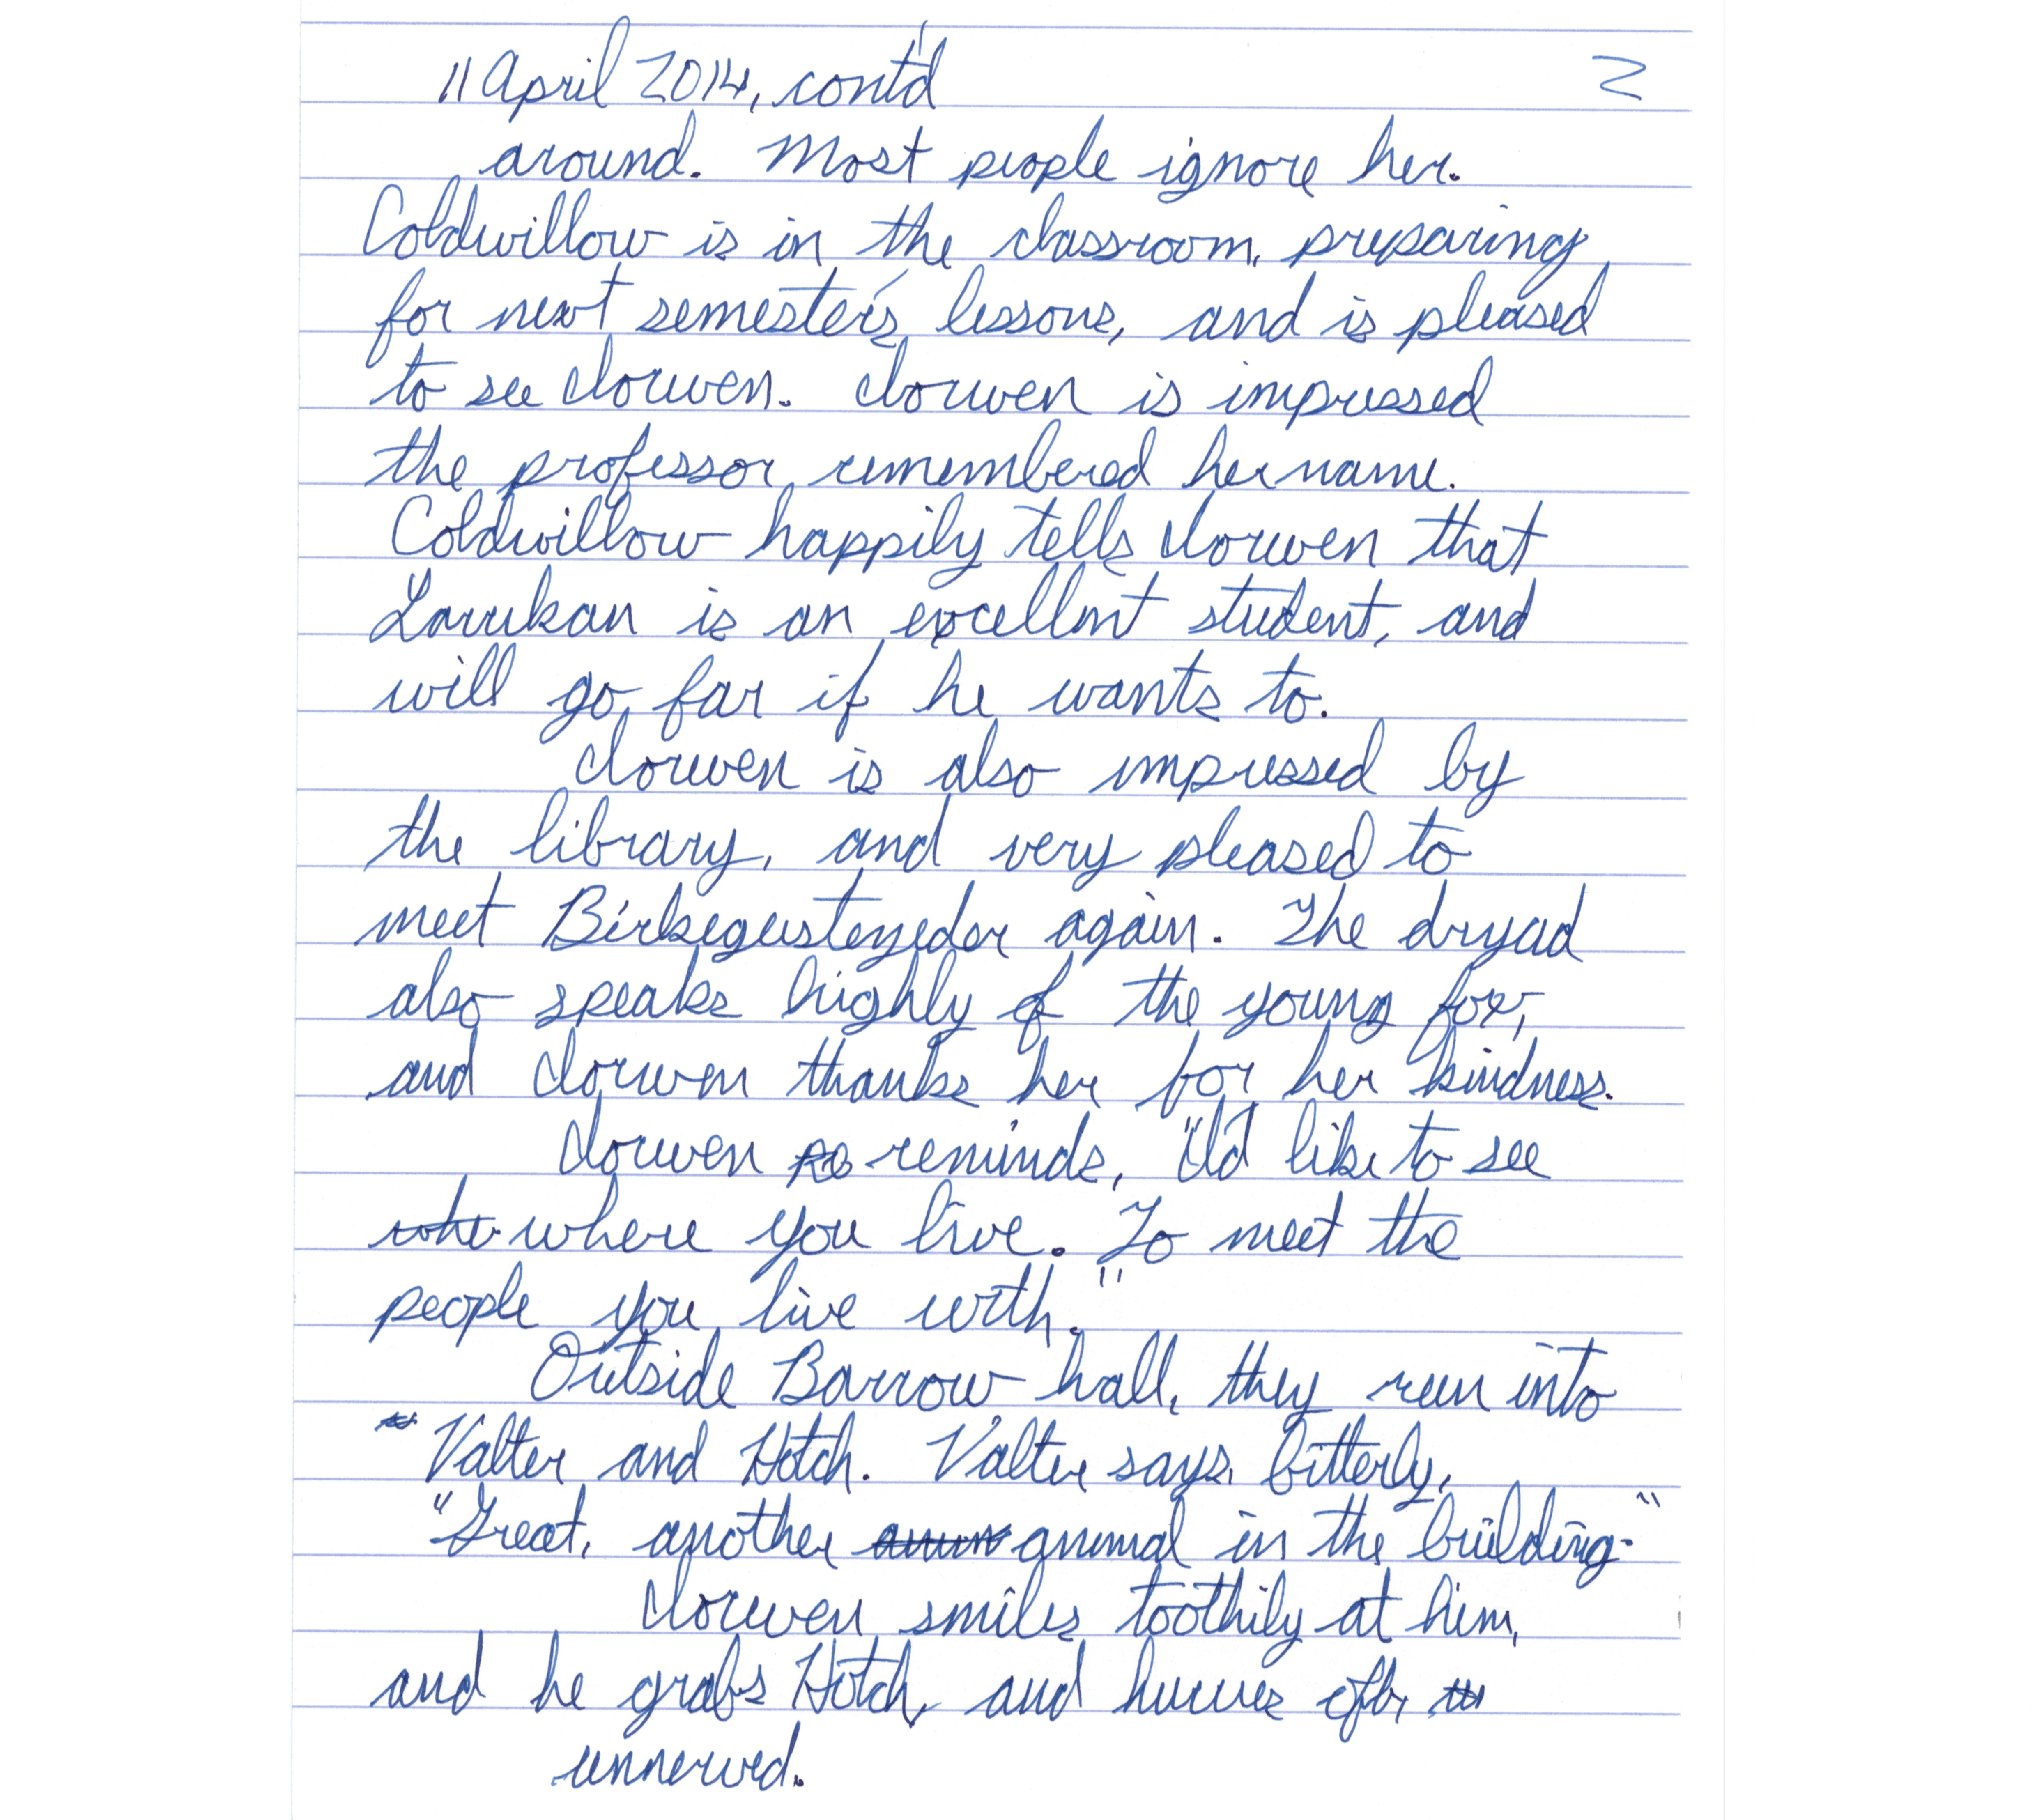 11 April 2014, cont'd 2
around. Most people ignore her.
Coldwillow is in the classroom, preparing
for next semester's lessons, and is pleased
to see Clouwen. Clouwen is impressed
the professor remembered her name.
Coldwillow happily tells Clouwen that
Larukan is an excellent student, and
will go far if he wants to.
Clouwen is also impressed by
the library, and very pleased to
meet again. The dryad
also speaks highly of the young fox,
and Clouwen thanks her for her kindness.
Clouwen reminds, "I'd like to see
where you live. To meet the
people you live with."
Outside Barrow hall, they run into
Valter and Hotch. Valter says, bitterly,
"Great, another animal in the building."
Clouwen smiles toothily at him,
and he grabs Hotch, and hurries off,
unnerved.